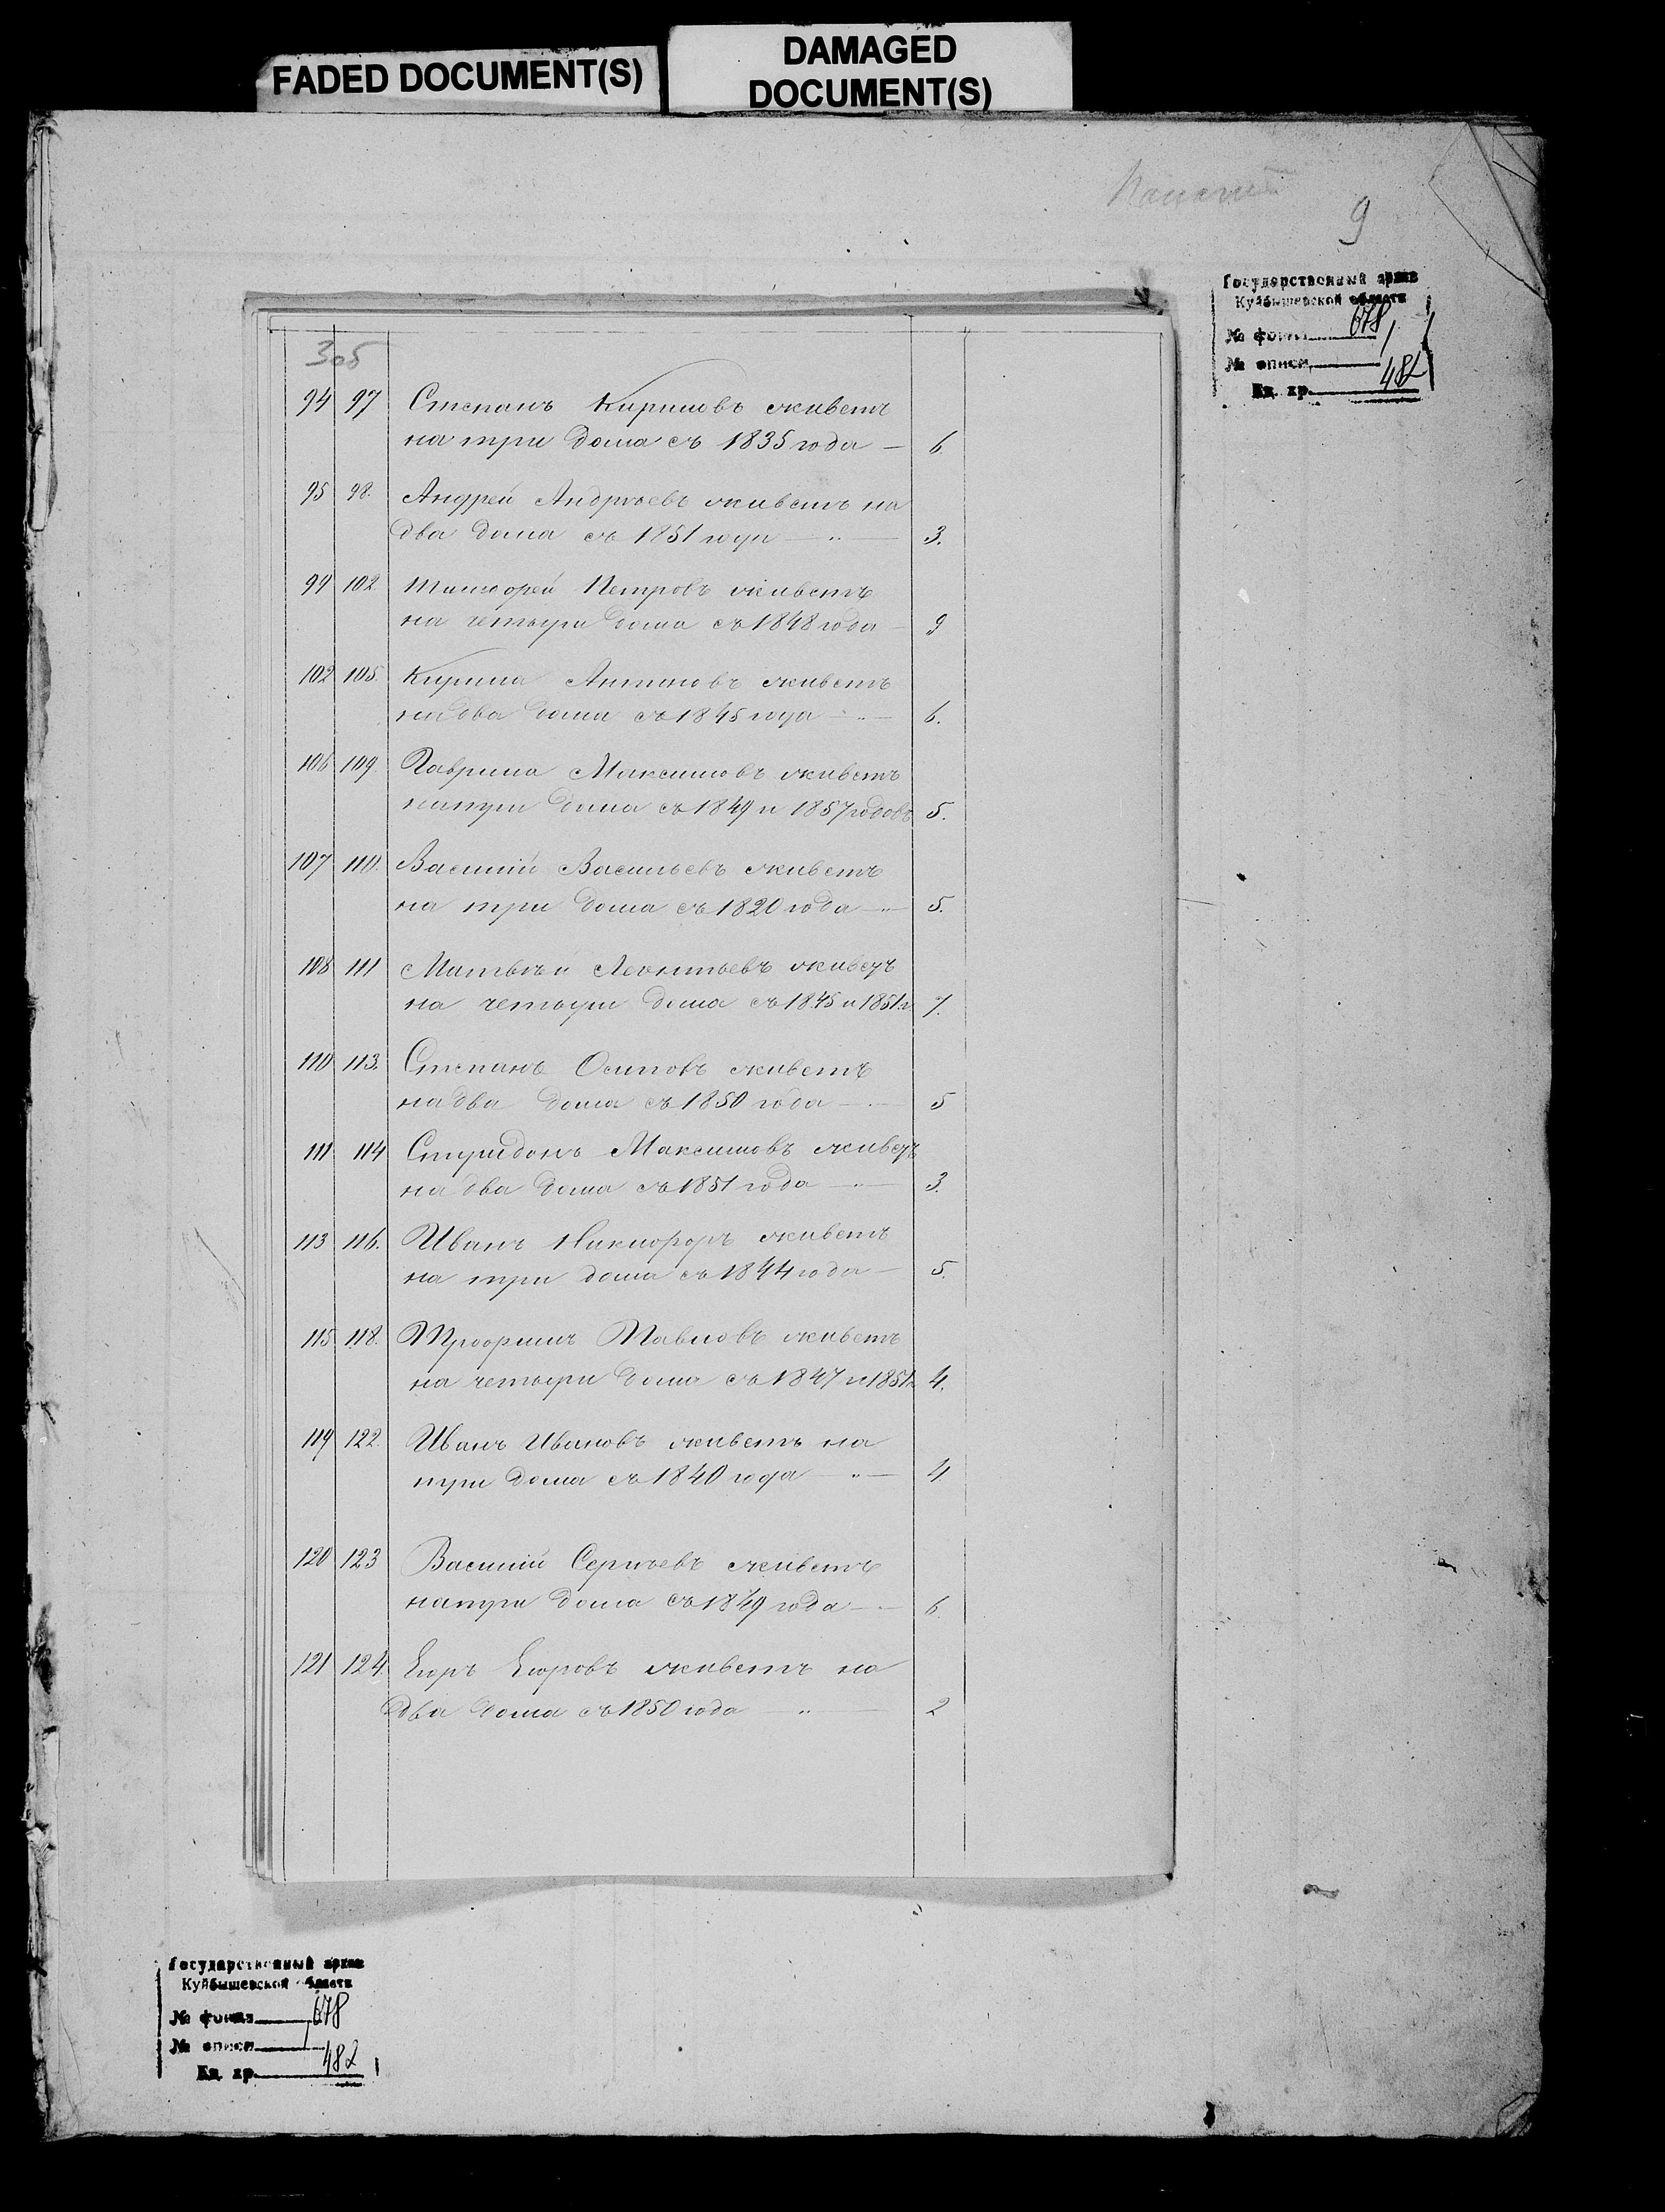 FADED DOCUMENT(S)
DAMAGED
DOCUMENT(S)
9
Государственный архив
Куйбышевской области
№ фонда 678
№ описи 1
Ед. хр. 482
305
94 97 Степанъ Кириловъ живетъ
на три дома съ 1835 года — 6.
95 98. Андрей Андреевъ живетъ на
два дома съ 1851 года — „ — 3.
99 102 Тимофей Петровъ живетъ
на четыри дома съ 1848 года — 9
102 105. Кирила Антиповъ живетъ
на два дома съ 1845 года — „ — 6.
106 109 Гаврила Максимовъ живетъ
на три дома съ 1849 и 1857 годовъ 5.
107 110. Василий Васильевъ живетъ
на три дома съ 1820 года — „ — 5.
108 111 Матвѣй Леонтьевъ живетъ
на четыри дома съ 1845 и 1851 г. 7.
110 113. Степанъ Осиповъ живетъ
на два дома съ 1850 года — „ — 5
111 114 Спиридонъ Максимовъ живетъ
на два дома съ 1851 года — „ — 3.
113 116. Иванъ Никифоръ живетъ
на три дома съ 1844 года — 5.
115 118. Трофимъ Павловъ живетъ
на четыри дома съ 1847 и 1851 г. 4.
119 122. Иванъ Ивановъ живетъ на
три дома съ 1840 года — „ — 4
120 123 Василий Сергѣевъ живетъ
на три дома съ 1849 года — „ — 6.
121 124. Егоръ Егоровъ живетъ на
два дома съ 1850 года — „ — 2
Государственный архив
Куйбышевской области
№ фонда 678
№ описи 1
Ед. хр. 482